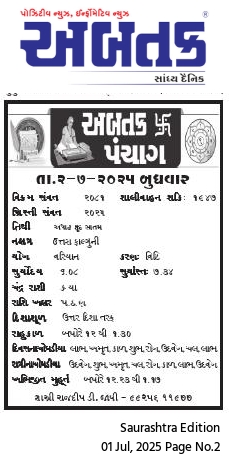 પોઝિટીવ ન્યુઝ, ઈન્ફોર્મેટિવ ન્યુઝ
અબતક ®
સાંધ્ય દૈનિક
અબતક 卐
પંચાગ
તા.૨-૭-૨૦૨૫ બુધવાર
વિક્રમ સંવત ૨૦૮૧ શાલીવાહન શકિ: ૧૯૪૭
ખ્રિસ્તી સંવત ૨૦૨૫
તિથી અષાઢ સુદ સાતમ
નક્ષત્ર ઉત્તરા ફાલ્ગુની
યોગ વરિયાન કરણ: વિષ્ટિ
સુર્યોદય ૬.૦૮ સુર્યાસ્ત: ૭.૩૪
ચંદ્ર રાશી કન્યા
રાશિ અક્ષર પ.ઠ.ણ
દિશાશૂળ ઉત્તર દિશા તરફ
રાહુકાળ બપોરે ૧૨ થી ૧.૩૦
દિવસનાચોઘડીયા લાભ, અમૃત, કાળ, શુભ, રોગ, ઉદવેગ, ચલ, લાભ
રાત્રીનાચોઘડીયા ઉદવેગ, શુભ, અમૃત, ચલ, રોગ, કાળ, લાભ, ઉદવેગ
અભિજીત મુહૂર્ત બપોરે ૧૨.૨૩ થી ૧.૧૭
શાસ્ત્રી રાજદીપ ડી. જોષી - ૯૯૨૫૬ ૧૧૯૭૭
Saurashtra Edition
01 Jul, 2025 Page No.2